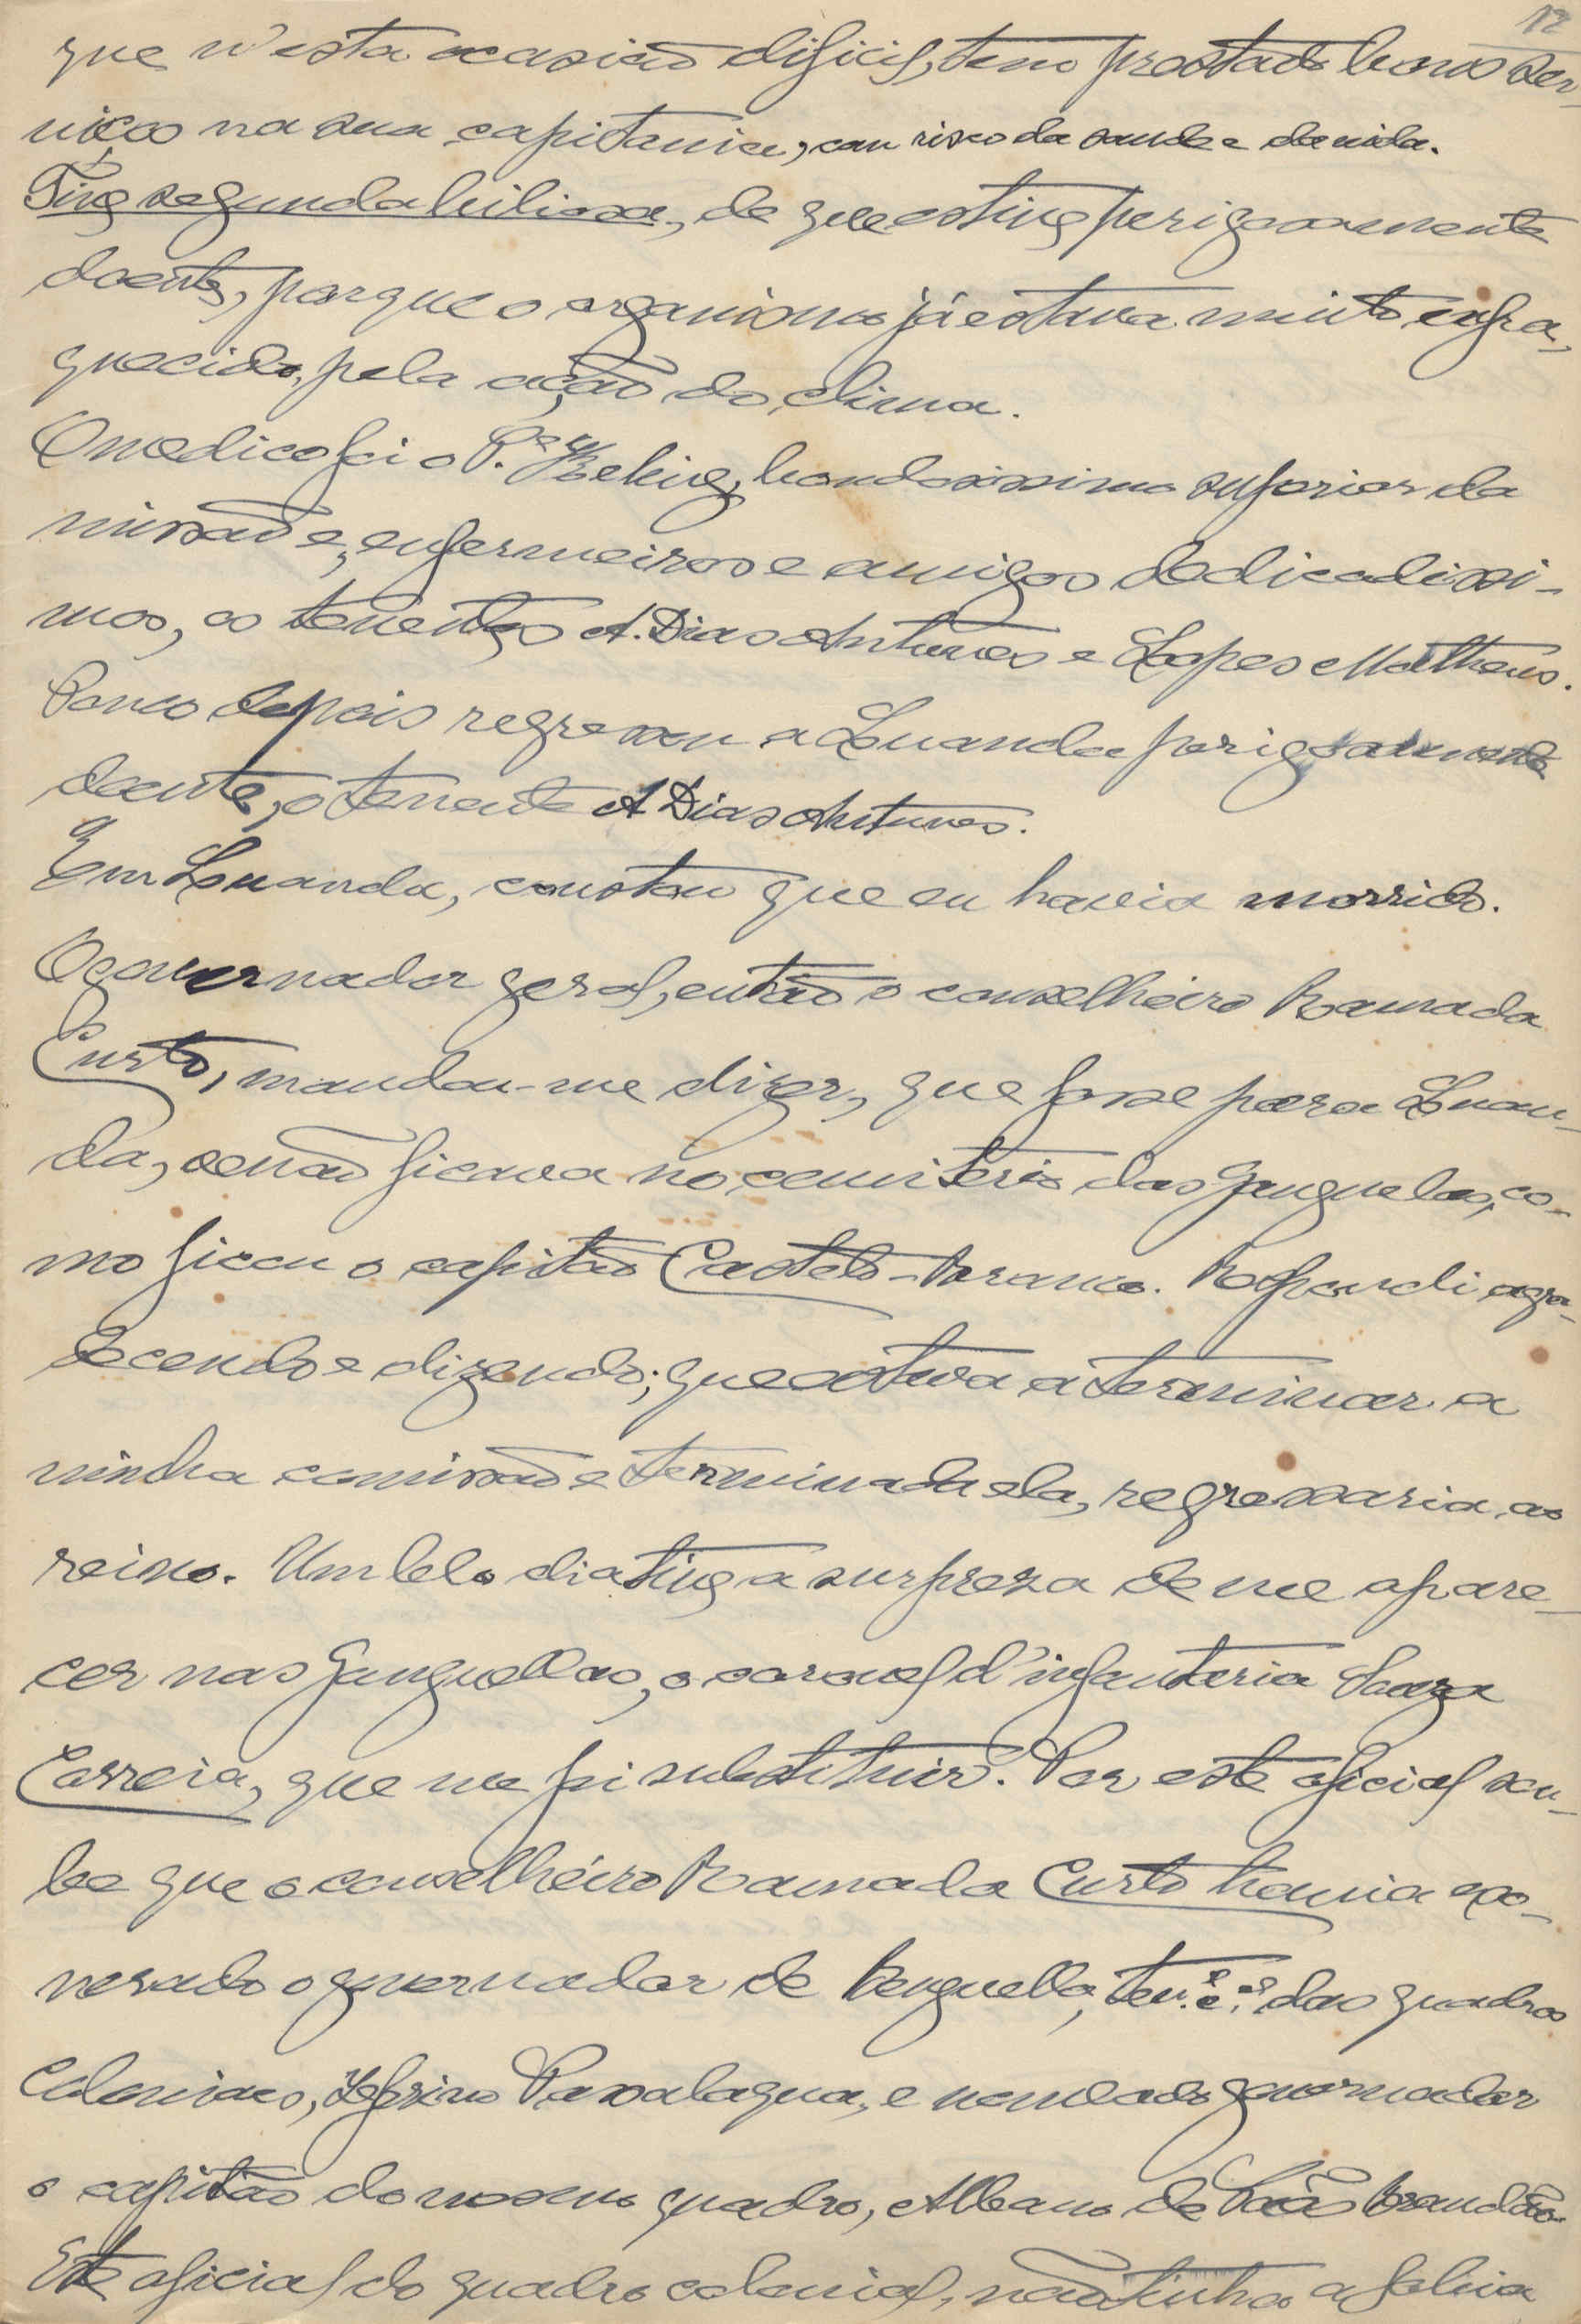 12
que n'esta ocasião dificil, tem prestado bons ser-
viços na sua capitania, com risco da saude e da vida.
Tive segunda biliosa, de que estive perigosamente
doente, porque o organismo já estava muito enfra-
quecido, pela acção do clima.
O medico foi o P.e bondosissimo superior da
missão e, enfermeiros e amigos dedicadissi-
mos, os tenentes A. Dias Antunes e Lopes Matheus.
Pouco depois regressou a Luanda perigosamente
doente, o tenente A Dias Antunes.
Em Luanda, constou que eu havia morrido.
O governador geral, então o conselheiro Ramada
Curto, mandou-me dizer, que fosse para Luan-
da, senão ficava no cemiterio das Ganguelas, co-
mo ficou o capitão Castelo-Branco. Respondi agra-
decendo e dizendo; que estava a terminar a
minha comissão e terminada ela, regressaria ao
reino. Um belo dia tive a surpreza de me apare-
cer nas Ganguellas, o coronel d'infanteria Souza
Correia, que me foi substituir. Por este oficial sou-
be que o conselheiro Ramada Curto havia exo-
nerado o governador de Benguella, ten.e c.el dos quadros
Coloniaes, Zeferino Passalaqua, e nomeado governador
o capitão do nosso quadro, Albano de Brandão
Este oficial do quadro colonial, não tinha a